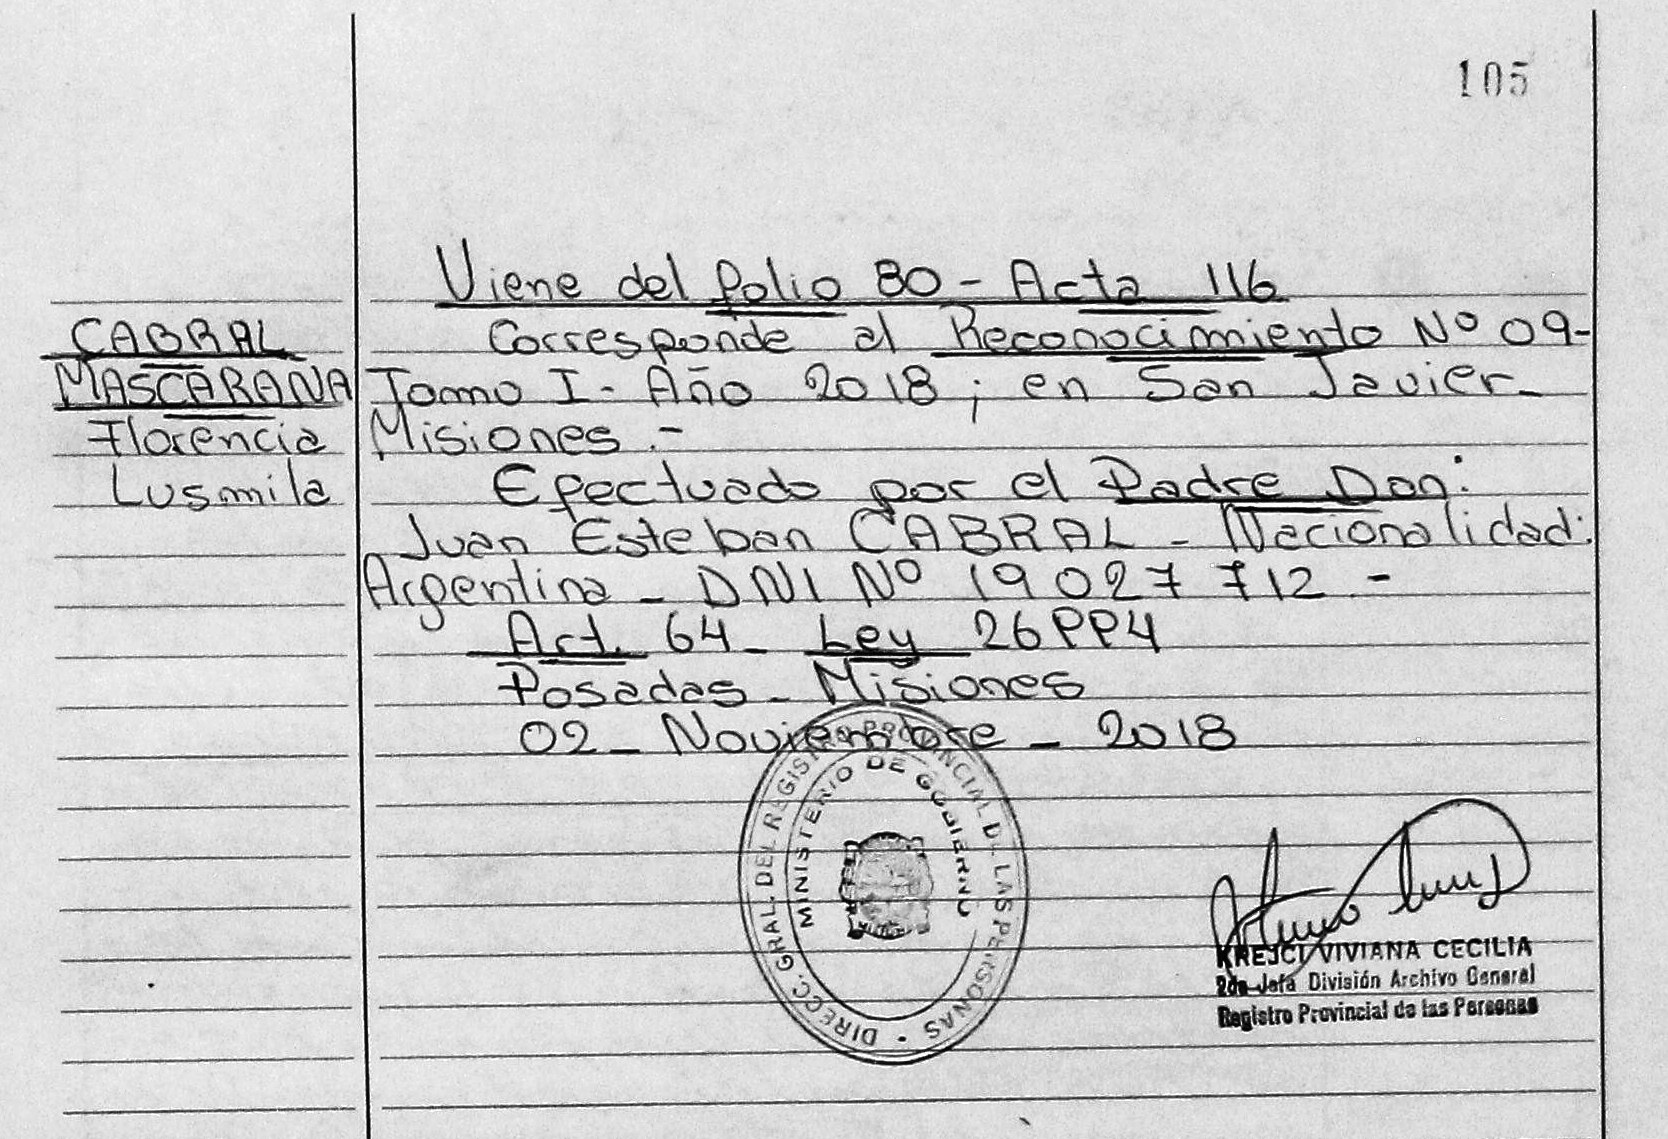 105
Viene del folio 80 - Acta 116
CABRAL
MASCARANA
Florencia
Lusmila
Corresponde al Reconocimiento Nº 09-
Tomo I - Año 2018 ; en San Javier -
Misiones.-
Efectuado por el Padre Don:
Juan Esteban CABRAL - Nacionalidad:
Argentina - DNI Nº 19 027 712 -
Art. 64 - Ley 26994
Posadas - Misiones
02 - Noviembre - 2018
DIRECC. GRAL. DEL REGISTRO PROVINCIAL DE LAS PERSONAS
MINISTERIO DE GOBIERNO
KREJCI VIVIANA CECILIA
2da Jefa División Archivo General
Registro Provincial de las Personas